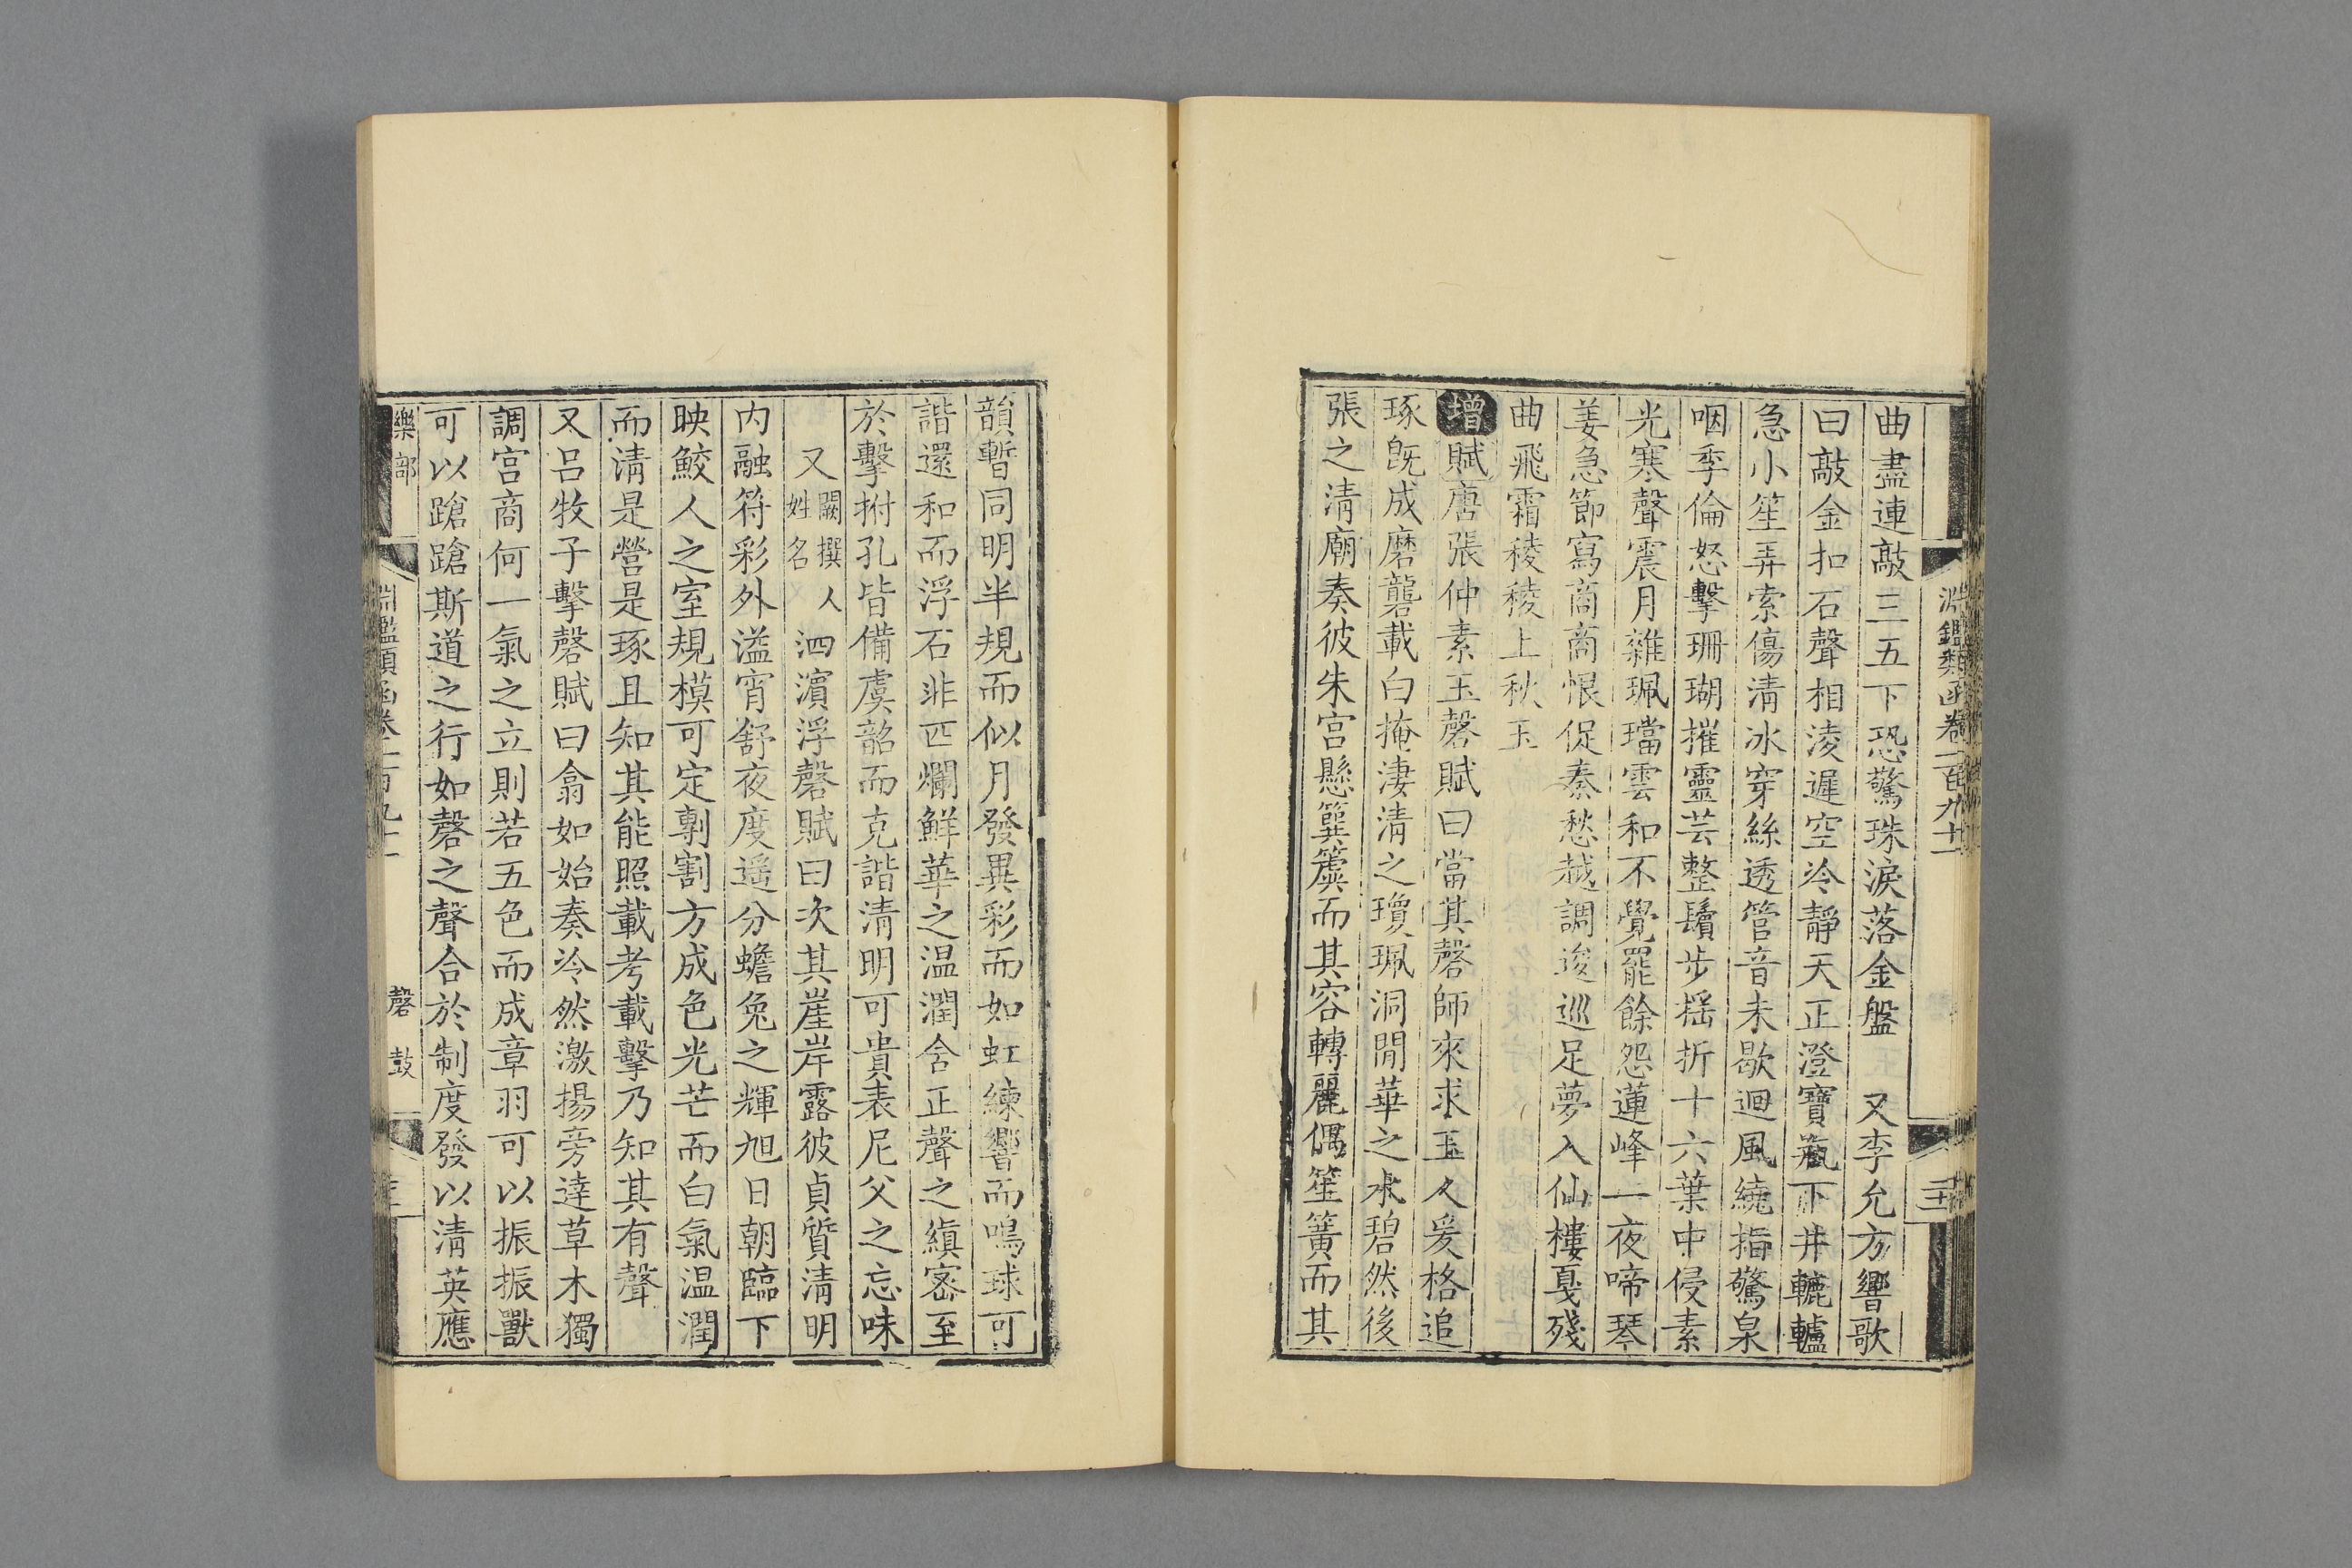 淵鑑類函卷一百九十一
曲盡連敲三五下恐驚珠淚落金盤　又李允方響歌
曰敲金扣石聲相淩遲空冷靜天正澄寶瓶下井轆轤
急小笙弄索傷清冰穿絲透管音未歇迴風繞指驚泉
咽季倫怒擊珊瑚摧靈芸整鬢步搖折十六葉中侵素
光寒聲震月雜珮璫雲和不覺罷餘怨蓮峰一夜啼琴
姜急節寫商商恨促秦愁越調逡巡足夢入仙樓戛殘
曲飛霜稜稜上秋玉
增賦唐張仲素玉磬賦曰當其磬師來求玉人爰格追
琢旣成磨礱載白掩淒清之瓊珮洞閒華之水碧然後
張之清廟奏彼朱宫懸簨簴而其容轉麗偶笙簧而其
韻暫同明半規而似月發異彩而如虹練響而鳴球可
諧還和而浮石非匹爛鮮華之温潤含正聲之縝宻至
於擊拊孔皆備虞韶而克諧清明可貴表尼父之忘味
又闕撰人姓名　泗濵浮磬賦曰次其崖岸露彼貞質清明
内融符彩外溢宵舒夜度遥分蟾兔之輝旭日朝臨下
映鮫人之室規模可定剸割方成色光芒而白氣温潤
而清是營是琢且知其能照載考載擊乃知其有聲
又呂牧子擊磬賦曰翕如始奏泠然激揚旁達草木獨
調宫商何一氣之立則若五色而成章羽可以振振獸
可以蹌蹌斯道之行如磬之聲合於制度發以清英應
樂部　淵鑑類函卷一百九十一　磬　鼓